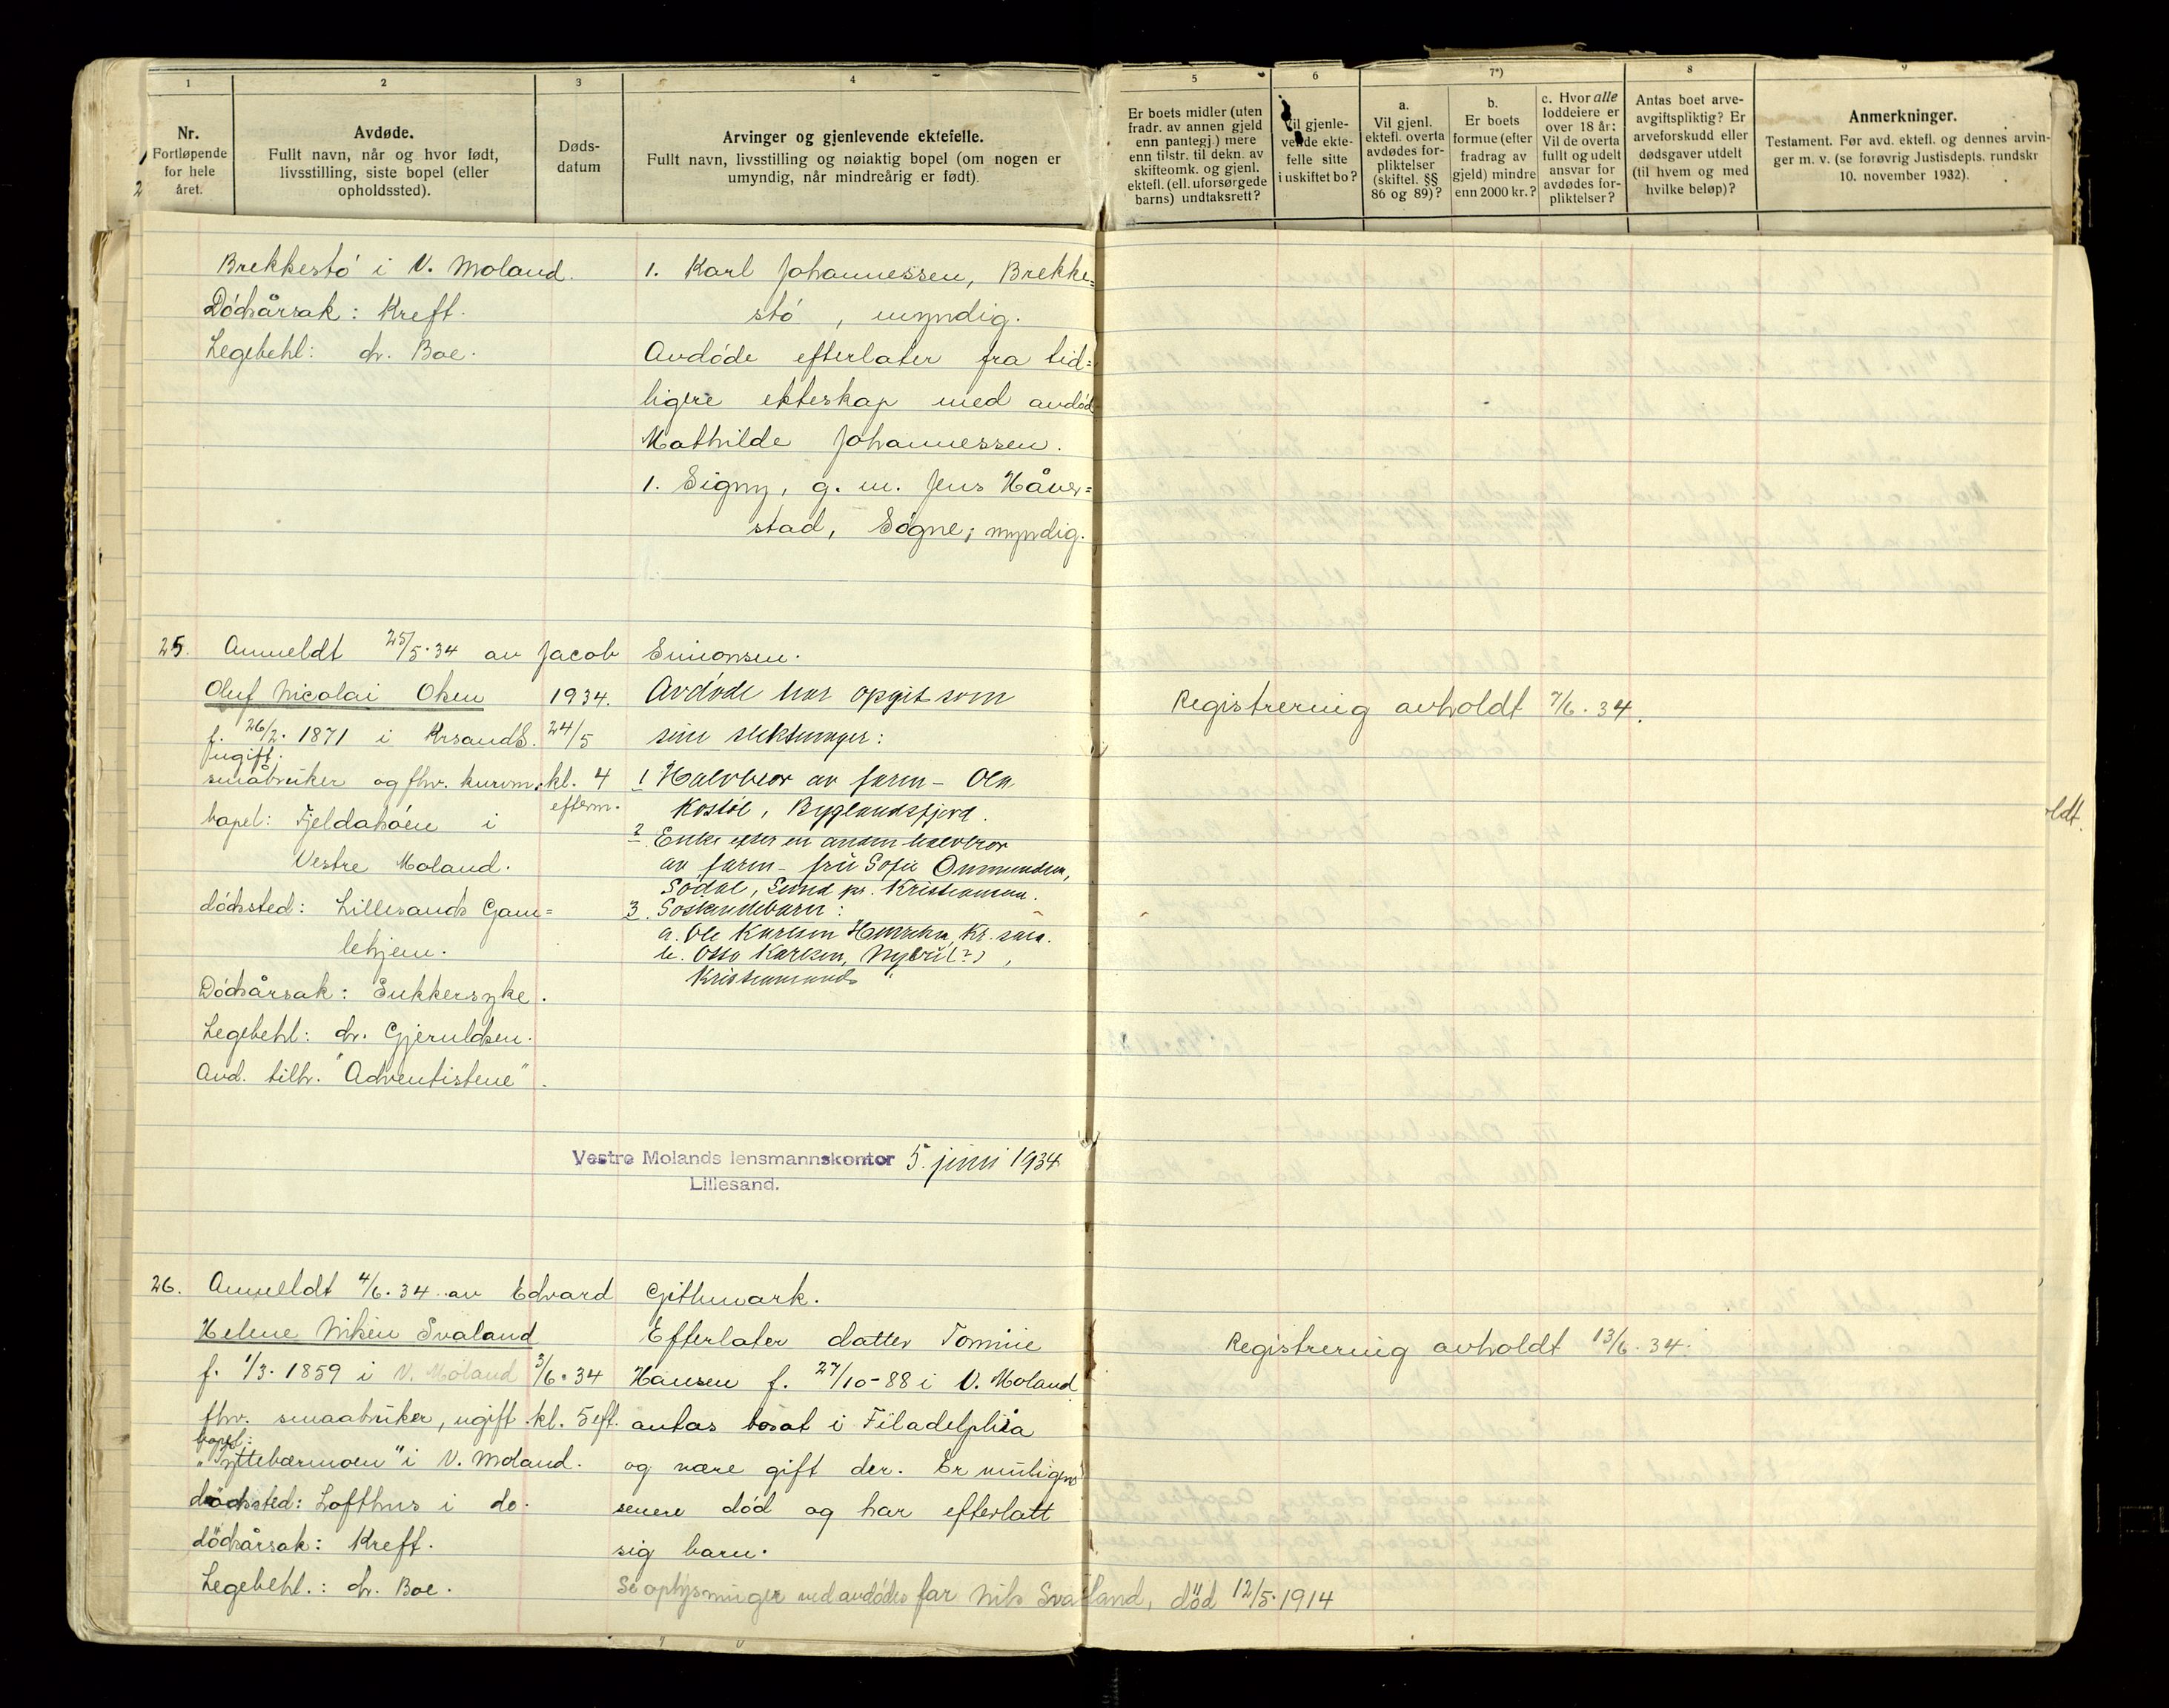 1
Nr.
Fortløpende
for hele
året.
2
Avdøde.
Fullt navn, når og hvor født,
livsstilling, siste bopel (eller
opholdssted).
3
Døds-
datum
4
Arvinger og gjenlevende ektefelle.
Fullt navn, livsstilling og nøiaktig bopel (om nogen er
umyndig, når mindreårig er født).
5
Er boets midler (uten
fradr. av annen gjeld
enn pantegj.) mere
enn tilstr. til dekn. av
skifteomk. og gjenl.
ektefl. (ell. uforsørgede
barns) undtaksrett?
6
Vil gjenle-
vende ekte-
felle sitte
i uskiftet bo?
7*)
a.
Vil gjenl.
ektefl. overta
avdødes for-
pliktelser
(skiftel. §§
86 og 89)?
b.
Er boets
formue (efter
fradrag av
gjeld) mindre
enn 2000 kr.?
c. Hvor alle
loddeiere er
over 18 år:
Vil de overta
fullt og udelt
ansvar for
avdødes for-
pliktelser?
8
Antas boet arve-
avgiftspliktig? Er
arveforskudd eller
dødsgaver utdelt
(til hvem og med
hvilke beløp)?
9
Anmerkninger.
Testament. Før avd. ektefl. og dennes arvin-
ger m. v. (se forøvrig Justisdepts. rundskr
10. november 1932).
Brekkestö i V. Moland.
Dödsårsak: Kreft.
Legebehl: dr. Boe.
1. Karl Johannessen, Brekke=
stö, myndig.
Avdöde efterlater fra tid=
ligere ekteskap med avdöd
Mathilde Johannessen.
1. Signy, g. m. Jens Håver=
stad, Sögne; myndig.
25. Anmeldt 25/5.34 av Jacob Simonsen.
Oluf Nicolai Olsen
f. 26/2. 1871 i Krsands.
Ugift.
småbruker og fhv. kurvm.
bopel: Fjeldahöien i
Vestre Moland.
dödssted: Lillesands Gam=
lehjem.
Dödsårsak: Sukkersyke.
Legebehl: dr. Gjeruldsen.
Avd. tilh. "Adventistene".
1934.
24/5
kl. 4
efterm.
Avdöde har opgit som
sine slektninger:
1 Halvbror av faren - Ole
Kostöl, Byglandsfjord.
2 Enke efter en annen halvbror
av faren - fru Sofie Ommundsen,
Södal, Lund pr. Kristiansan.
3. Söskendebarn:
a. Ole Karlsen, Kr.san.
b. Otto Karlsen, Nybü(?),
Kristiansands
Registrering avholdt 7/6. 34.
Vestre Molands lensmannskontor 5. juni 1934
Lillesand.
26. Anmeldt 4/6. 34 av Edvard Githmark.
Helene Nilsen Svaland
f. 1/3. 1859 i V. Moland
fhv. smaabruker, ugift.
bopel:
"Tyttebærmoen" i V. Moland.
dödssted: Lofthus i do.
dödsårsak: Kreft.
Legebehl.: dr. Boe.
3/6. 34
kl. 5 eft.
Efterlater datter Tomine
Hansen f. 27/10-88 i V. Moland
antas bosat i Filadelphia
og være gift der. Er muligens
senere död og har efterlatt
sig barn.
Se oplysninger ved avdödes far Nils Svaland, död 12/5. 1914
Registrering avholdt 13/6. 34.
oldt.